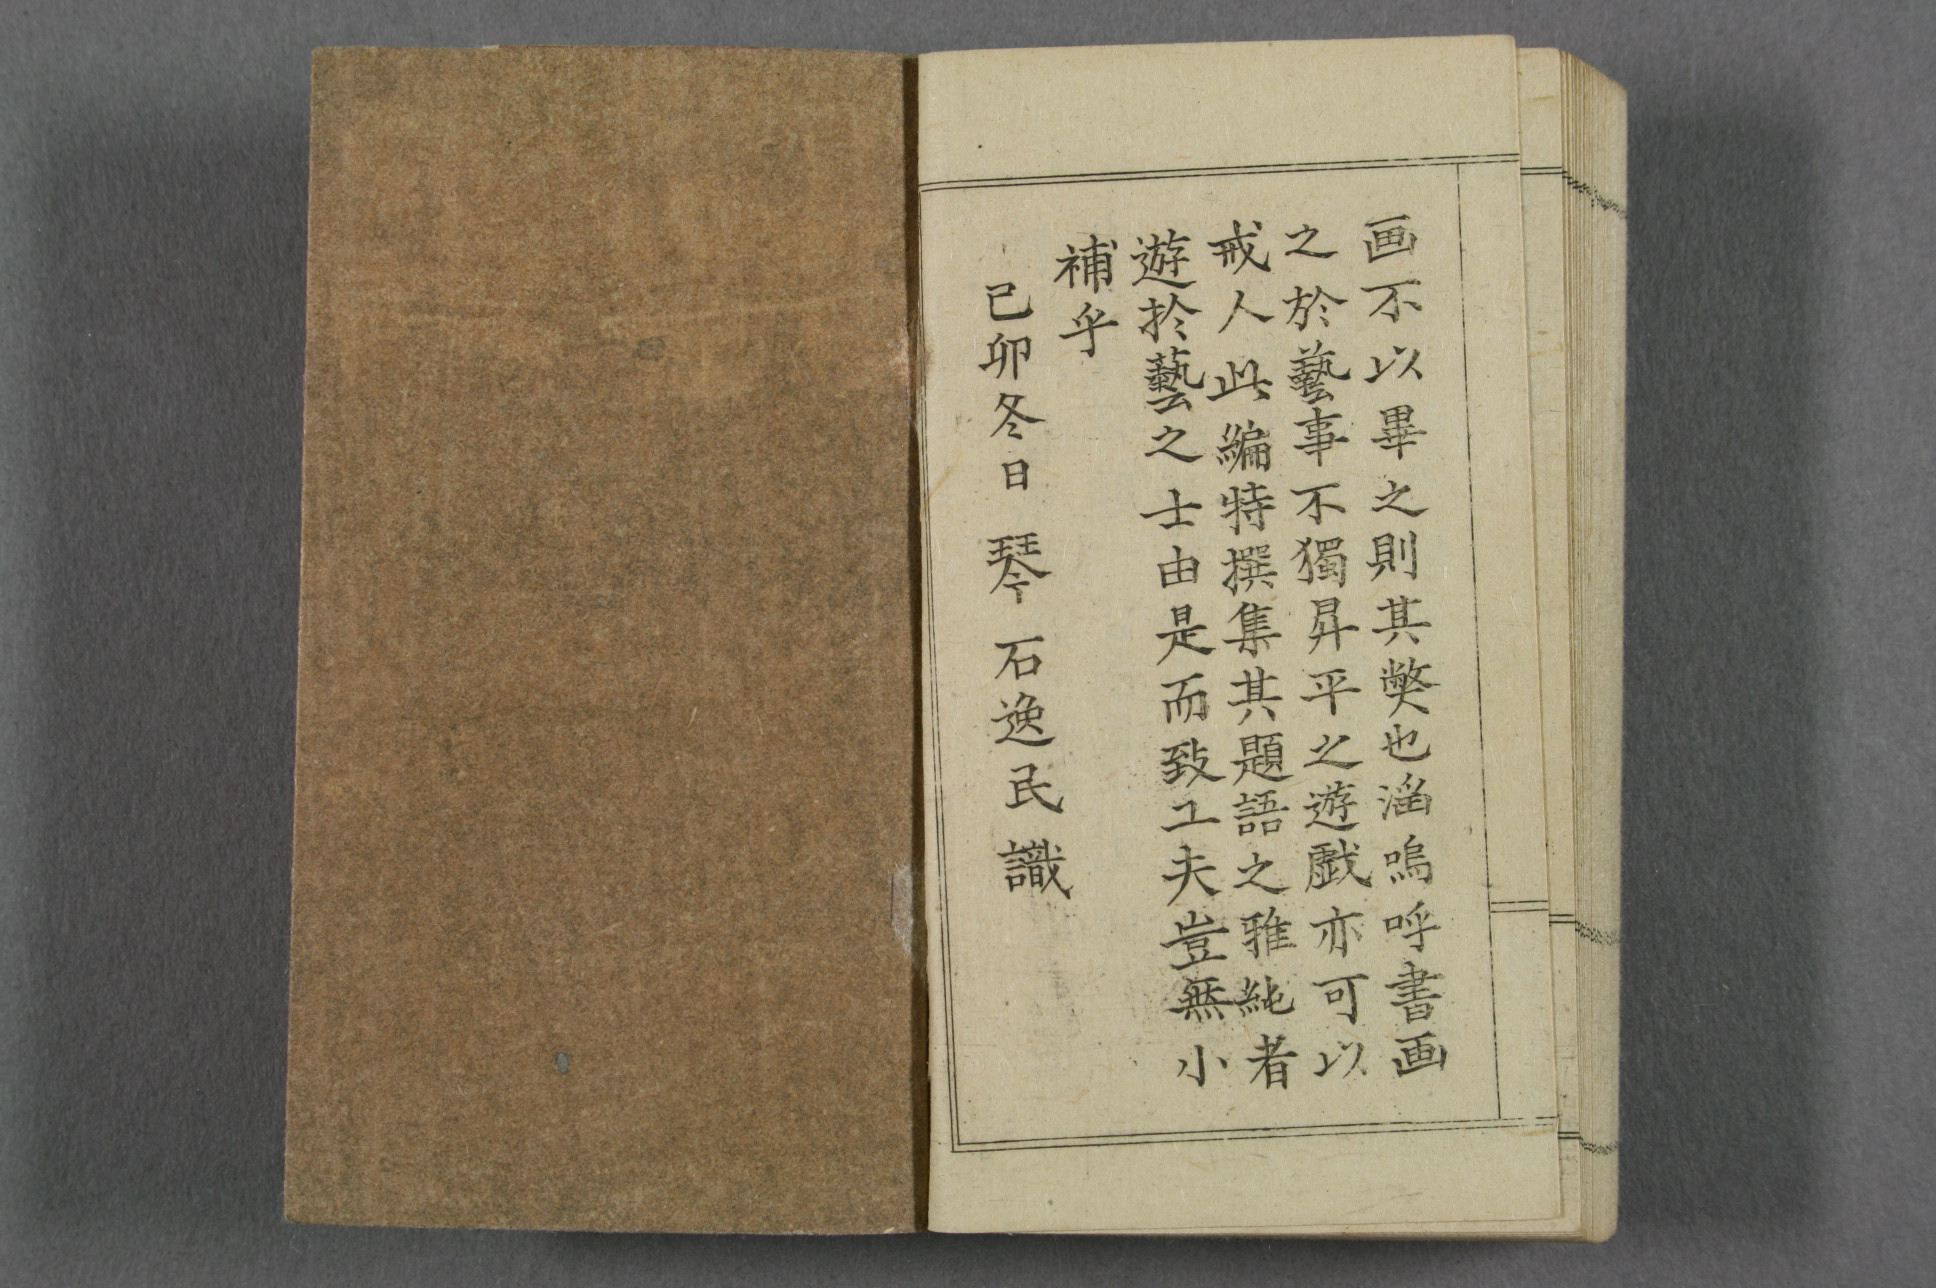 画不以畢之則其獘也滛嗚呼書画
之於藝事不獨昇平之遊戯亦可以
戒人此編特撰集其題語之雅純者
遊於藝之士由是而致工夫豈無小
補乎
己卯冬日 琴石逸民識